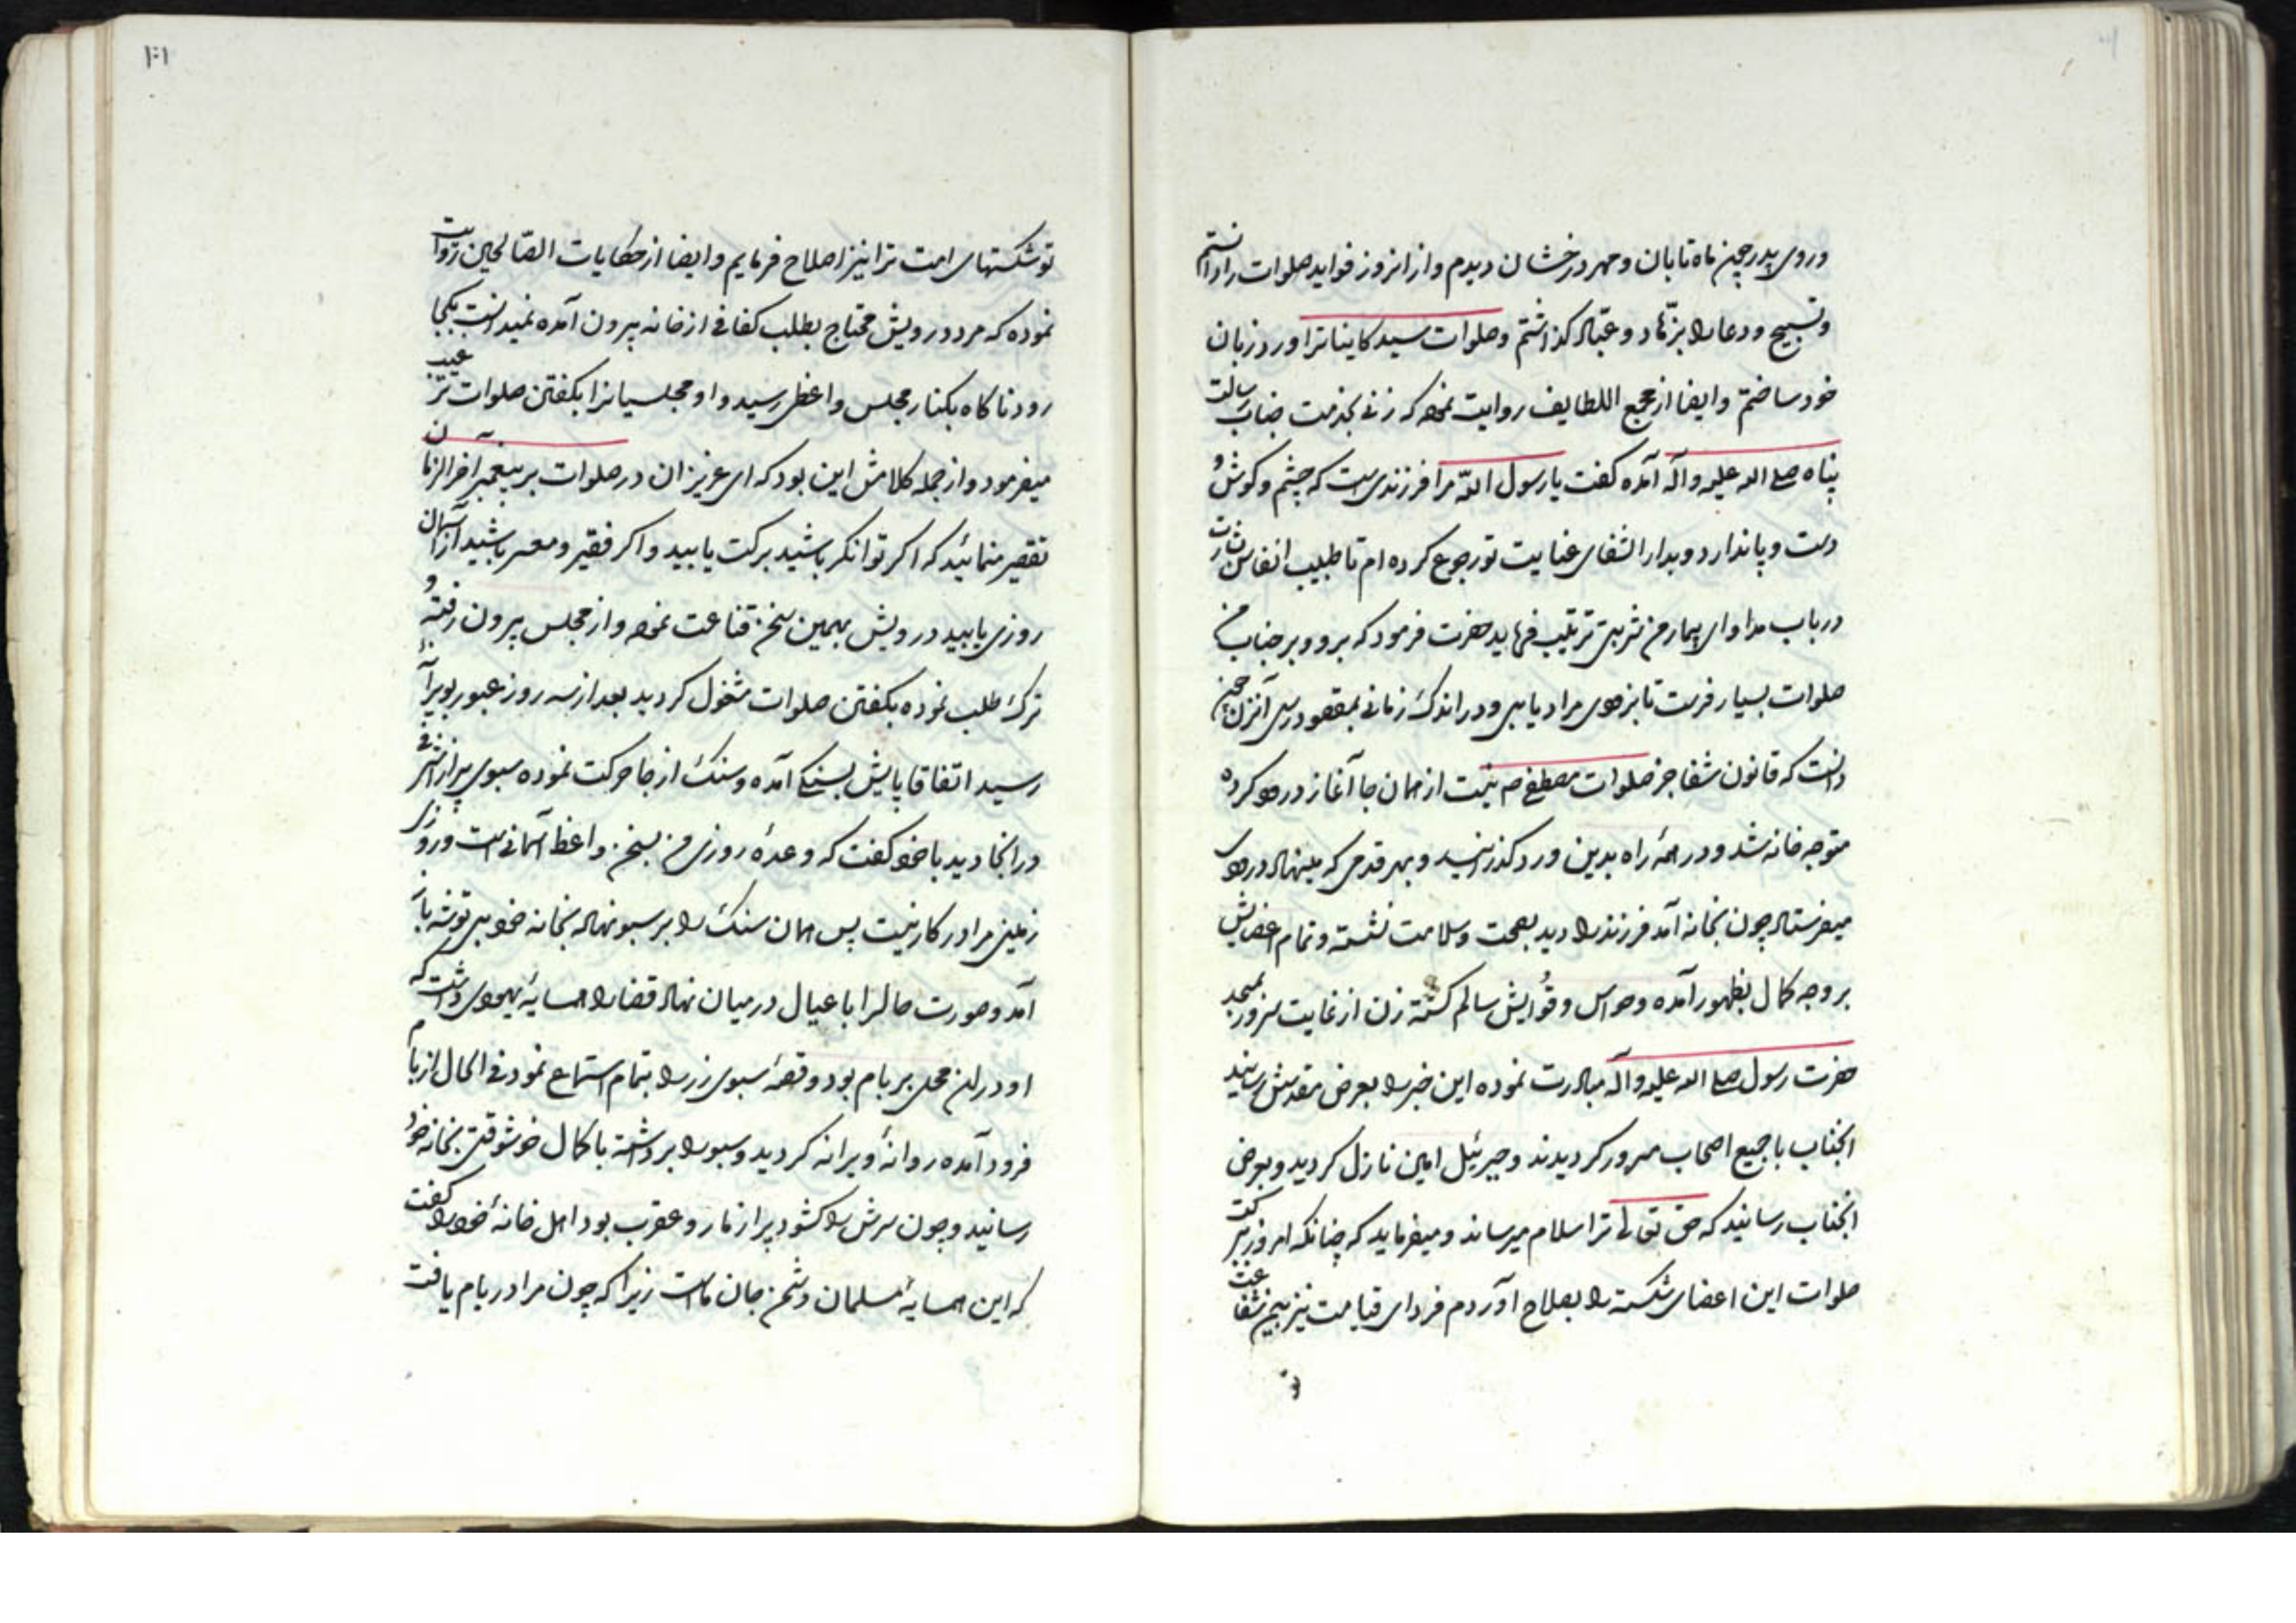 وروی پدر چون ماه تابان و مهر درخشان دیدم و از انروز فواید صلوات را دانستم
و تسبیح و دعا را بزهّاد و عبّاد کذاشتم و صلوات سید کاینات را ورد زبان
خود ساختم و ایضا از مجمع اللطایف روایت نموده که زنی بخدمت جناب رسالت
پناه صلی الله علیه وآله آمده کفت یا رسول اللّه مرا فرزندی است که چشم و کوش و
دست و پا ندارد و بدار الشفای عنایت تو رجوع کرده ام تا طبیب انفاس
در باب مداوای بیمار من شربتی ترتیب فرماید حضرت فرمود که برو و بر جناب من
صلوات بسیار فرست تا بزودی مراد یابی و در اندک زمانی بمقصود رسی آنزن چون
دانست که قانون شفا جز صلوات مصطفی ص نیست از همان جا آغاز درود کرده
متوجه خانه شد و در همهٔ راه بدین ورد کذرانید و بهر قدمی که مینهاد درودی
میفرستاد چون بخانه آمد فرزند را دید بصحت و سلامت نشسته و تمام اعضایش
بر وجه کمال بظهور آمده و حواس و قُوایش سالم کشته زن از غایت سرور بمسجد
حضرت رسول صلی الله علیه وآله مبادرت نموده این خبر را بعرض مقدسش رسانید
انجناب با جمیع اصحاب مسرور کردیدند و جبرئیل امین نازل کردید و بعرض
انجناب رسانید که حق تعالی ترا سلام میرساند و میفرماید که چنانکه امروز ببرکت
صلوات این اعضای شکسته را بصلاح آوردم فردای قیامت نیز بیمن شفاعت
تو
۱۰۱
تو شکستهای امت ترا نیز اصلاح فرمایم و ایضا از حکایات الصّالحین روایت
نموده که مرد درویش محتاج بطلب کفافی از خانه بیرون آمده نمیدانست بکجا
رود ناکاه بکنار مجلس واعظی رسید و او مجلسیانرا بکفتن صلوات ترغیب
میفرمود و از جمله کلامش این بود که ای عزیزان در صلوات بر پیغمبر آخر الزمان
تقصیر منمائید که اکر توانکر باشید برکت یابید و اکر فقیر و معسر باشید از آسمان
روزی یابید درویش بهمین سخن قناعت نموده و از مجلس بیرون رفته و
ترک طلب نموده بکفتن صلوات مشغول کردید بعد از سه روز عبور بویرانهٔ
رسید اتفاقا پایش بسنکی آمده و سنک از جا حرکت نموده سبوی پر از اشرفی
در انجا دید با خود کفت که وعدهٔ روزی من بسخن واعظ آسمانی است و روزی
زمینی مرا در کار نیست پس همان سنک را بر سبو نهاد بخانه خود بی توشه باز
آمد و صورت حالرا با عیال در میان نهاد قضا را همسایهٔ یهودی داشت که
او دران محل بر بام بود و قصهٔ سبوی زر را بتمام استماع نمود فی الحال از بام
فرود آمده روانهٔ ویرانه کردید و سبو را برداشته با کمال خوشوقتی بخانهٔ خود
رسانید و چون سرش را کشود پر از مار و عقرب بود اهل خانهٔ خود را کفت
که این همسایهٔ مسلمان دشمن جان ماست زیرا که چون مرا در بام یافت